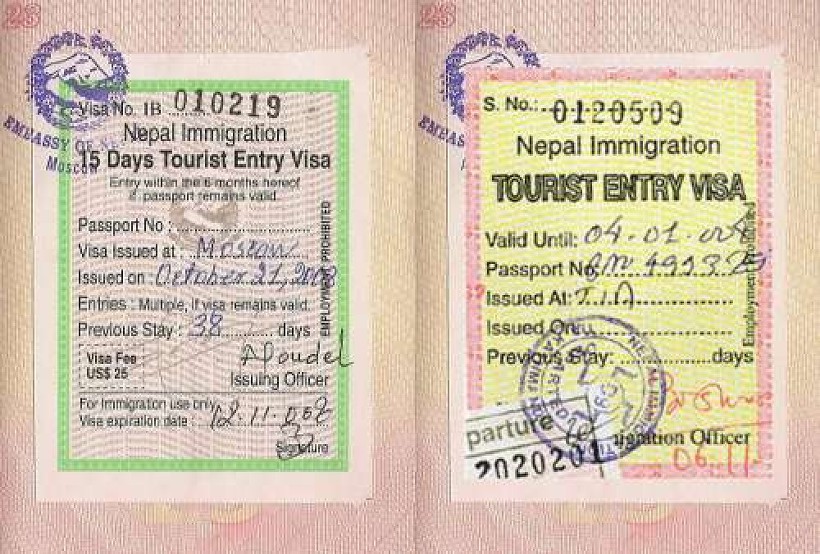 23
EMBASSY OF NE
Moscow
Visa No. 1B 010219
Nepal Immigration
15 Days Tourist Entry Visa
Entry within the 6 months hereof
if passport remains valid.
Passport No :
Visa Issued at : Moscow
Issued on : October 21, 2008
Entries : Multiple, if visa remains valid.
Previous Stay : 38 days
EMPLOYMENT PROHIBITED
Visa Fee
US$ 25
Issuing Officer
For Immigration use only
Visa expiration date :
Signature
23
EMBAS
S. No.: 0120509
Nepal Immigration
TOURIST ENTRY VISA
Valid Until: 04.01.
Passport No.
Issued At: TIA
Issued On:
Previous Stay: days
Employment Prohibited
parture
2020201
Officer
06.11